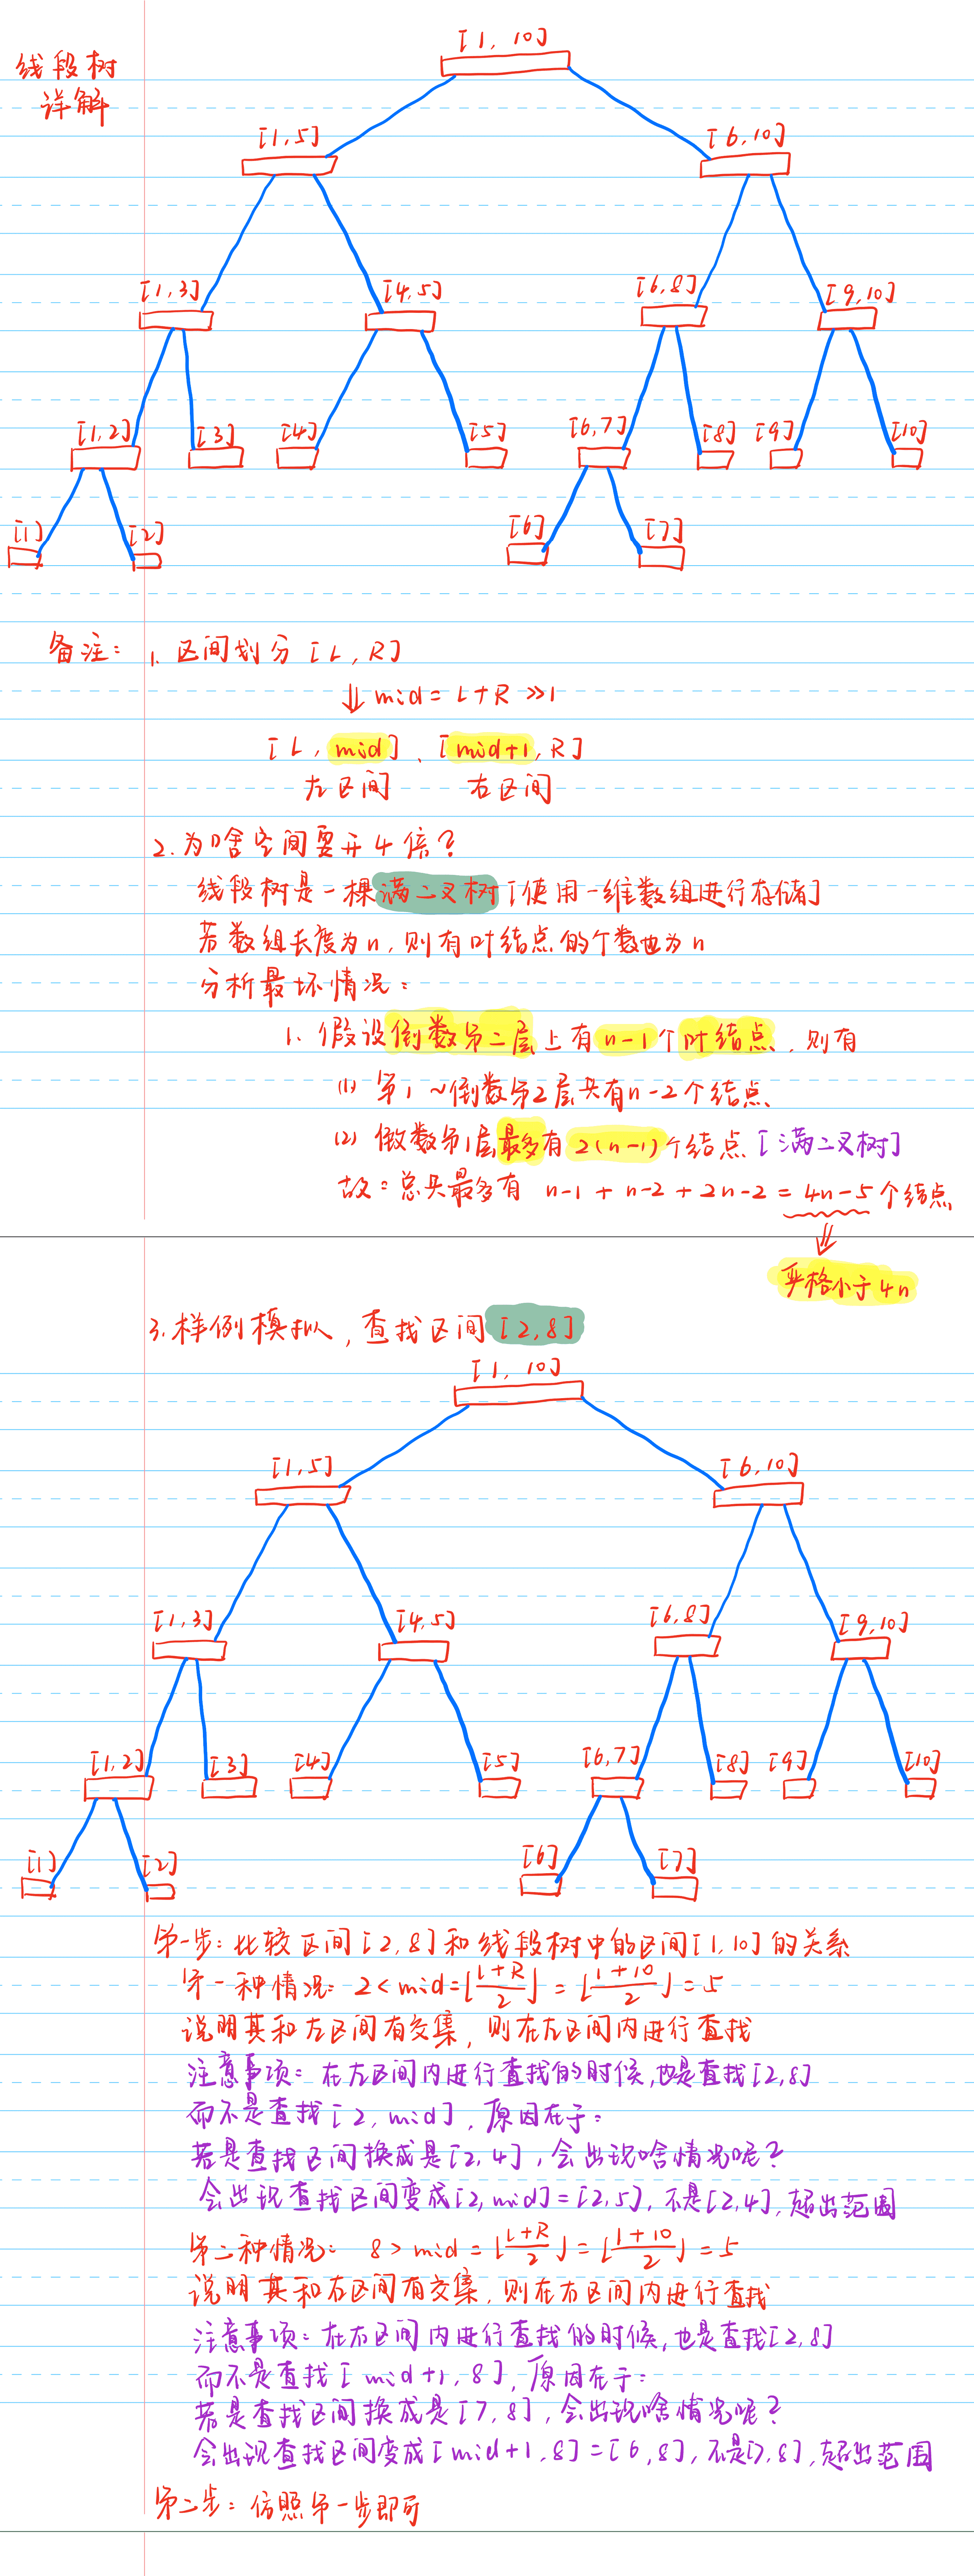 线段树
详解
[1, 10]
[1,5]
[6,10]
[1,3]
[4,5]
[6,8]
[9,10]
[1,2]
[3]
[4]
[5]
[6,7]
[8]
[9]
[10]
[1]
[2]
[6]
[7]
备注: 1. 区间划分 [L, R]
⇓ mid = L+R >>1
[L, mid]、[mid+1, R]
左区间 右区间
2. 为啥空间要开4倍?
线段树是一棵满二叉树[使用一维数组进行存储]
若数组长度为n, 则有叶结点的个数也为n
分析最坏情况:
1. 假设倒数第二层上有n-1个叶结点, 则有
(1) 第1~倒数第2层共有n-2个结点
(2) 倒数第1层最多有2(n-1)个结点[满二叉树]
故: 总共最多有 n-1 + n-2 + 2n-2 = 4n-5个结点
⇓
严格小于4n
3. 样例模拟, 查找区间[2,8]
[1, 10]
[1,5]
[6,10]
[1,3]
[4,5]
[6,8]
[9,10]
[1,2]
[3]
[4]
[5]
[6,7]
[8]
[9]
[10]
[1]
[2]
[6]
[7]
第一步: 比较区间[2,8]和线段树中的区间[1,10]的关系
第一种情况: 2<mid=⌊(L+R)/2⌋=⌊(1+10)/2⌋=5
说明其和左区间有交集, 则在左区间内进行查找
注意事项: 在左区间内进行查找的时候,也是查找[2,8]
而不是查找[2, mid], 原因在于:
若是查找区间换成是[2,4], 会出现啥情况呢?
会出现查找区间变成[2,mid]=[2,5], 不是[2,4], 超出范围
第二种情况: 8>mid=⌊(L+R)/2⌋=⌊(1+10)/2⌋=5
说明其和右区间有交集, 则在右区间内进行查找
注意事项: 在右区间内进行查找的时候,也是查找[2,8]
而不是查找[mid+1, 8], 原因在于:
若是查找区间换成是[7,8], 会出现啥情况呢?
会出现查找区间变成[mid+1,8]=[6,8], 不是[7,8], 超出范围
第二步: 仿照第一步即可